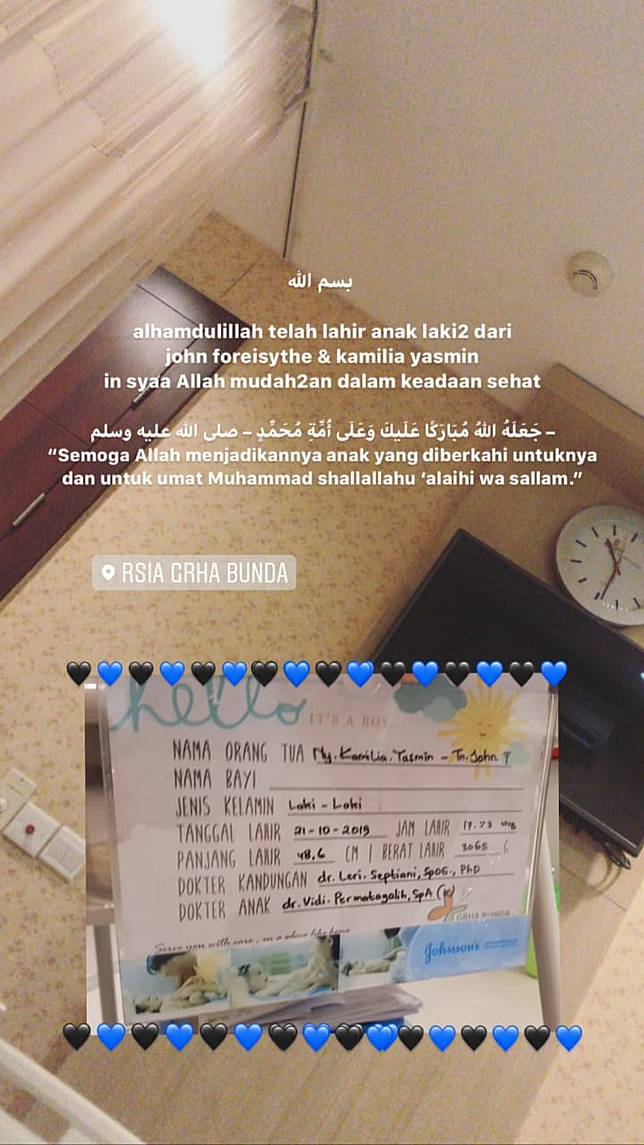 بسم الله
alhamdulillah telah lahir anak laki2 dari
john foreisythe & kamilia yasmin
in syaa Allah mudah2an dalam keadaan sehat
– جَعَلَهُ اللهُ مُبَارَكًا عَلَيكَ وَعَلَى أُمَّةِ مُحَمَّدٍ – صلى الله عليه وسلم
“Semoga Allah menjadikannya anak yang diberkahi untuknya
dan untuk umat Muhammad shallallahu ‘alaihi wa sallam.”
RSIA GRHA BUNDA
hello
IT'S A BOY...
NAMA ORANG TUA Ny. Kamilia. Yasmin - Tn. John. F
NAMA BAYI
JENIS KELAMIN Laki - Laki
TANGGAL LAHIR 21-10-2019 JAM LAHIR 17.23
PANJANG LAHIR 48,6 CM | BERAT LAHIR 3065 G
DOKTER KANDUNGAN dr. Leri. Septiani, SpOG., PhD
DOKTER ANAK dr. Vidi. Permatagalih, SpA (K)
GRHA BUNDA
Serve you with care, in a place like home
Johnson's